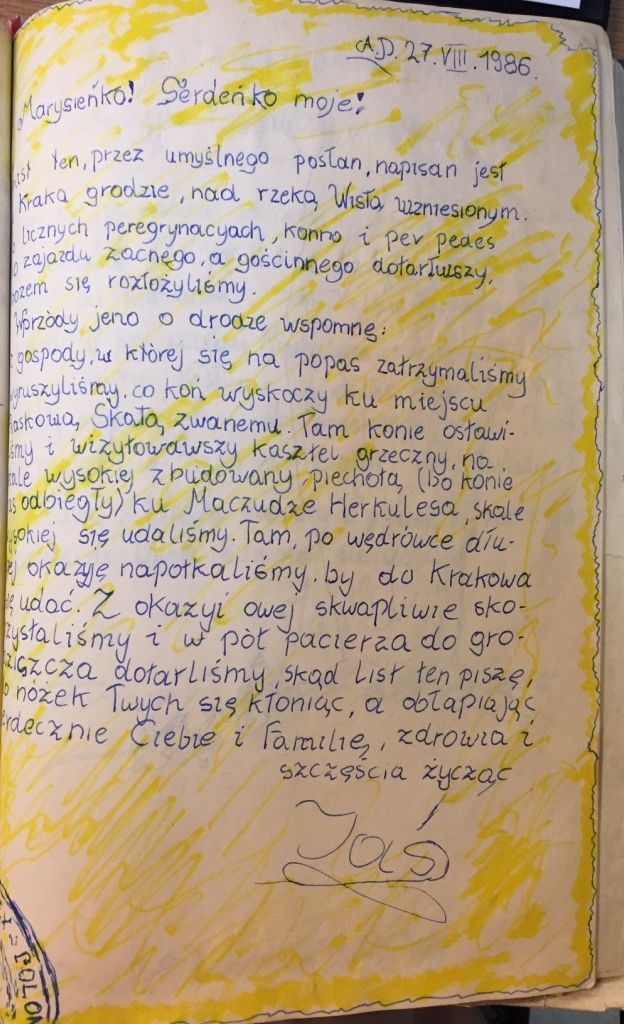 A.D. 27.VIII.1986.
Marysieńko! Serdeńko moje!
ist ten, przez umyślnego posłan, napisan jest
Kraka grodzie, nad rzeką Wisłą wzniesionym.
licznych peregrynacyach, konno i per pedes
o zajazdu zacnego, a gościnnego dotarłwszy,
bozem się rozłożyliśmy.
Wprzódy jeno o drodze wspomnę:
gospody, w której się na popas zatrzymaliśmy
yruszyliśmy, co koń wyskoczy ku miejscu
iaskową Skałą zwanemu. Tam konie ostawi-
śmy i wizytowawszy kasztel grzeczny, na
kale wysokiej zbudowany, piechotą (bo konie
as odbiegły) ku Maczudze Herkulesa, skale
ysokiej się udaliśmy. Tam, po wędrówce dłu-
ej okazyję napotkaliśmy, by do Krakowa
ię udać. Z okazyi owej skwapliwie sko-
zystaliśmy i w pół pacierza do gro-
ziszcza dotarliśmy, skąd list ten piszę,
o nóżek Twych się kłoniąc, a obłapiając
erdecznie Ciebie i Familię, zdrowia i
szczęścia życząc
Jaś